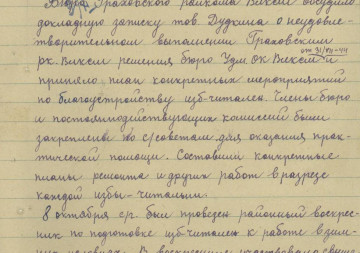 Бюро Граховского райкома ВЛКСМ обсудило
докладную записку тов. Дудкина о неудовле-
творительном выполнении Граховским
рк. ВЛКСМ решения бюро Удм. ОК ВЛКСМ и
от 31/VII-44
приняло план конкретных мероприятий
по благоустройству изб-читален. Члены бюро
и постояннодействующих комиссий были
закреплены по с/советам для оказания прак-
тической помощи. Составили конкретные
планы ремонта и других работ в разрезе
каждой избы-читальни.
8 октября с.г. был проведен районный воскрес-
ник по подготовке изб-читален к работе в зим-
них условиях. В воскреснике участвовало свыше